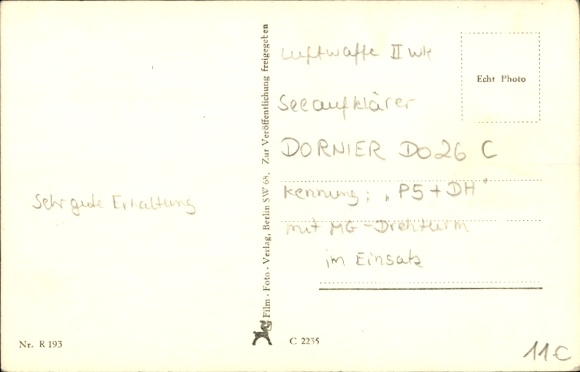 Sehr gute Erhaltung
Nr. R 193
Film-Foto-Verlag, Berlin SW 68, Zur Veröffentlichung freigegeben
Luftwaffe II WK
Seeaufklärer
DORNIER Do 26 C
Kennung: „P5+DH"
mit MG-Drehturm
im Einsatz
Echt Photo
C 2235
11€